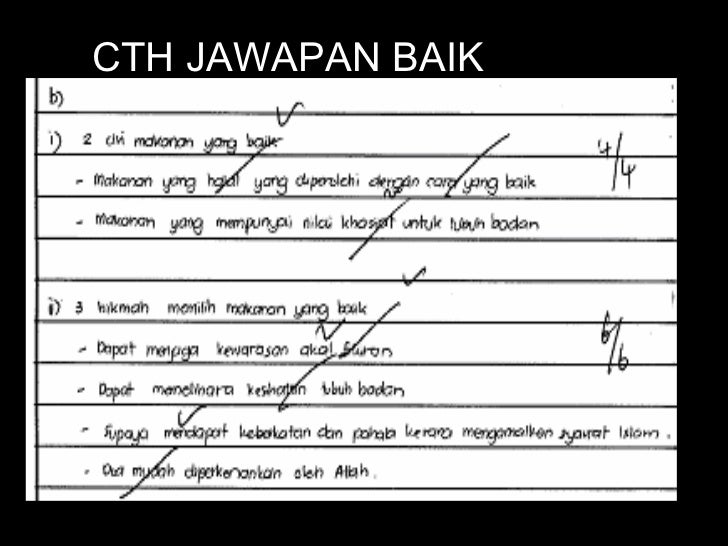 CTH JAWAPAN BAIK
b)
i) 2 ciri makanan yang baik
- Makanan yang halal yang diperolehi dengan cara yang baik
- Makanan yang mempunyai nilai khasiat untuk tubuh badan
4/4
ii) 3 hikmah memilih makanan yang baik
- Dapat menjaga kewarasan akal fikiran
- Dapat memelihara kesihatan tubuh badan
6/6
- Supaya mendapat keberkatan dan pahala kerana mengamalkan syariat Islam.
- Doa mudah diperkenankan oleh Allah.